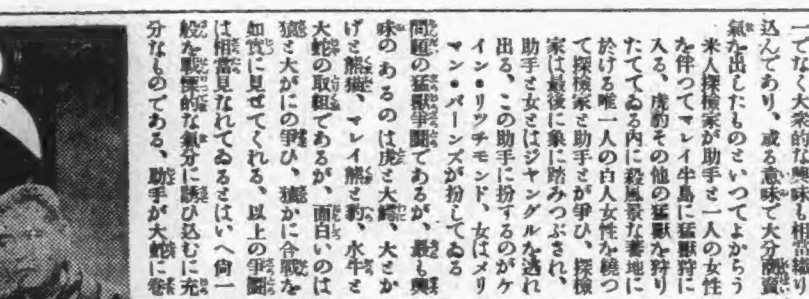 一でなく大衆的な興味も相當織り
込んであり、或る意味で大分濟實
氣を出したものといつてよからう
米人探檢家が助手と一人の女性
を伴つてマレイ半島に猛獸狩に
入る、虎豹その他の猛獸を狩り
たててゐる內に殺風景な蕃地に
於ける唯一人の白人女性を繞つ
て探檢家と助手とが爭ひ、探檢
家は最後に象に踏みつぶされ、
助手と女とはジヤングルを逃れ
出る、この助手に扮するのがケ
イン・リツチモンド、女はメリ
マン・バーンズが扮してゐる
問題の猛獸爭鬪であるが、最も興
味のあるのは虎と大鰐、犬とか
げと熊猫、マレイ熊と豹、水牛と
大蛇の取組であるが、面白いのは
猿と大がにの爭ひ、猿かに合戰を
如實に見せてくれる、以上の爭鬪
は相當見なれてゐるとはいへ尙一
般を戰慄的な氣分に誘ひ込むに充
分なものである、助手が大蛇に卷